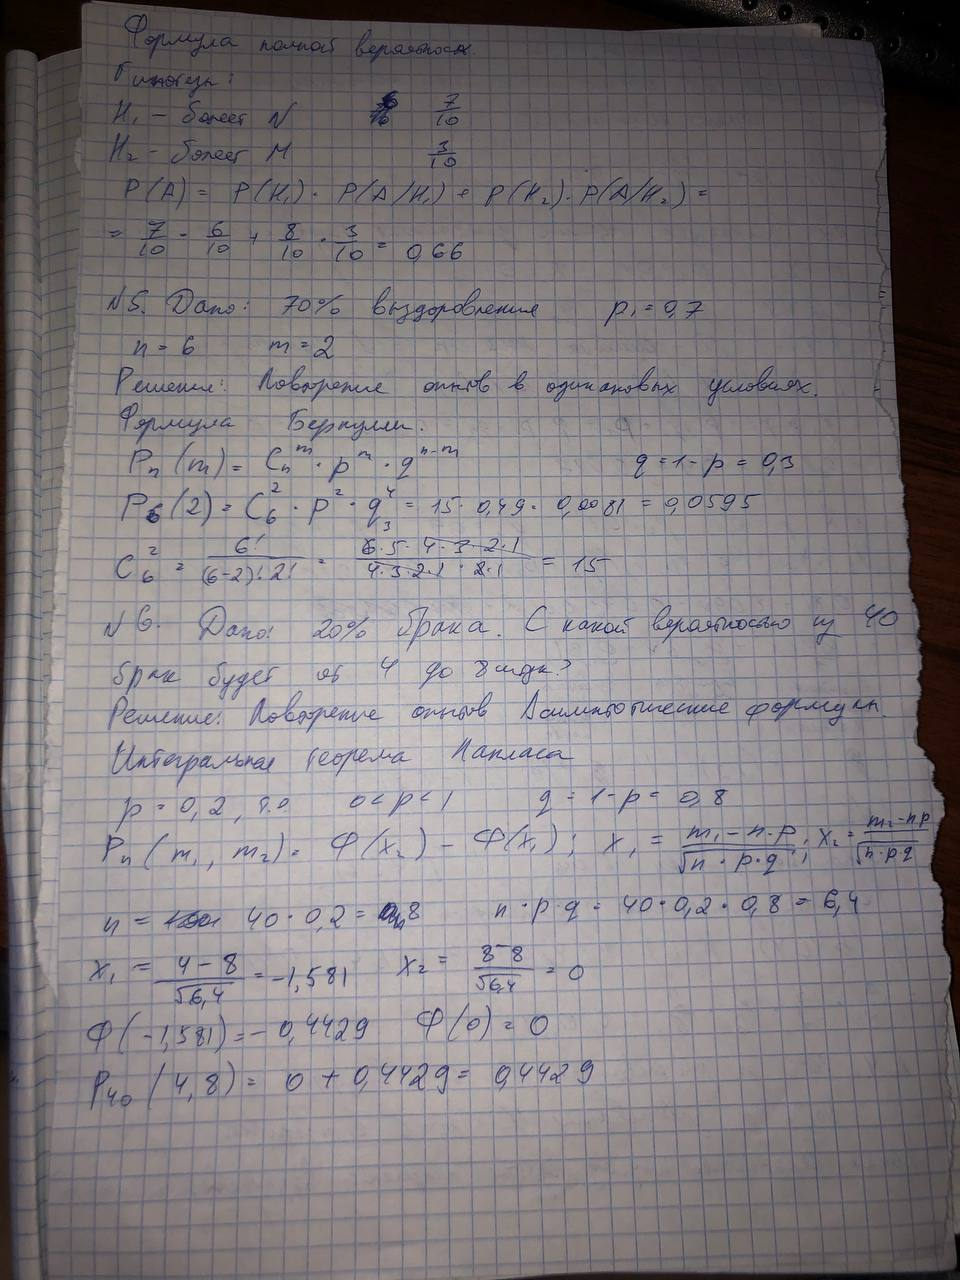 Формула полной вероятности.
Гипотезы:
H₁ - болеет N 7/10
H₂ - болеет M 3/10
P(A) = P(H₁) · P(A/H₁) + P(H₂) · P(A/H₂) =
= 7/10 · 6/10 + 8/10 · 3/10 = 0,66
N5. Дано: 70% выздоровления p₁ = 0,7
n = 6 m = 2
Решение: Повторение опытов в одинаковых условиях.
Формула Бернулли.
Pₙ(m) = Cₙᵐ · pᵐ · qⁿ⁻ᵐ q = 1 - p = 0,3
P₆(2) = C₆² · p² · q⁴ = 15 · 0,49 · 0,0081 = 0,0595
C₆² = 6!/((6-2)! 2!) = (6·5·4·3·2·1)/(4·3·2·1·2·1) = 15
N6. Дано: 20% брака. С какой вероятностью из 40
брак будет от 4 до 8 штук?
Решение: Повторение опытов Асимптотические формулы.
Интегральная теорема Лапласа
p = 0,2, т.о 0 < p < 1 q = 1 - p = 0,8
Pₙ(m₁, m₂) = Ф(x₂) - Ф(x₁); x₁ = (m₁ - n·p)/√(n·p·q); x₂ = (m₂ - np)/√(n·p·q)
n = 40 · 0,2 = 8 n·p·q = 40 · 0,2 · 0,8 = 6,4
x₁ = (4 - 8)/√6,4 = -1,581 x₂ = (8 - 8)/√6,4 = 0
Ф(-1,581) = -0,4429 Ф(0) = 0
P₄₀(4,8) = 0 + 0,4429 = 0,4429